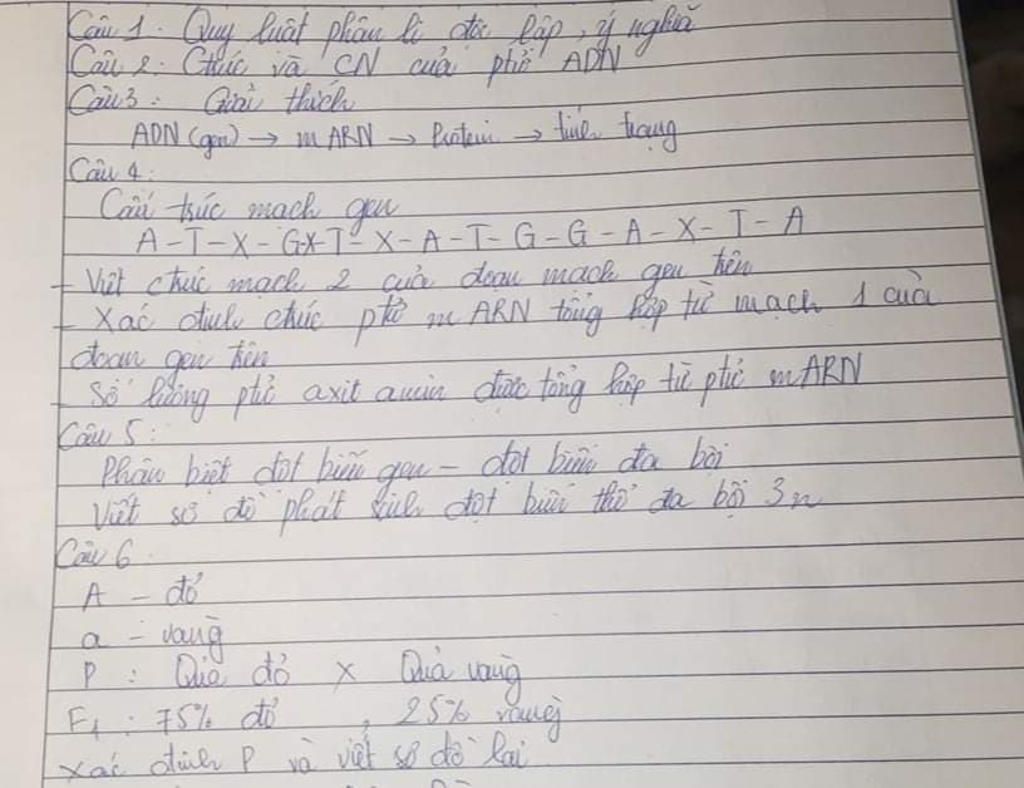 Câu 1. Quy luật phân li độc lập, ý nghĩa
Câu 2: Ctrúc và CN của phtử ADN
Câu 3: Giải thích
ADN (gen) → mARN → Protein → tính trạng
Câu 4:
Cấu trúc mạch gen
A - T - X - G-X-T - X - A - T - G - G - A - X - T - A
- Viết ctrúc mạch 2 của đoạn mạch gen trên
- Xác định ctrúc ptử mARN tổng hợp từ mạch 1 của
đoạn gen trên
- Số lượng ptử axit amin được tổng hợp từ ptử mARN
Câu 5:
Phân biệt đột biến gen - đột biến đa bội
Viết sơ đồ phát sinh đột biến thể đa bội 3n
Câu 6
A - đỏ
a - vàng
P : Quả đỏ x Quả vàng
F1 : 75% đỏ , 25% vàng
Xác định P và viết sơ đồ lai